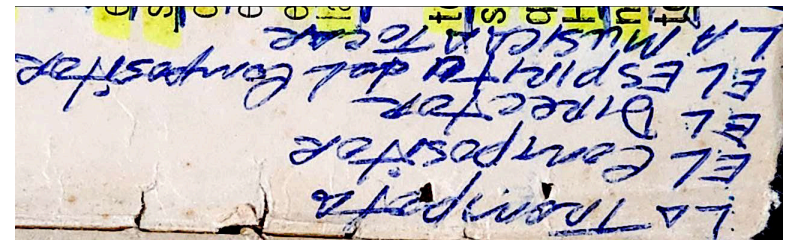 LA Trompeta
EL Compositor
EL DIRECTOR
EL ESPIRITU del Compositor
LA MUSICA A TOCAR